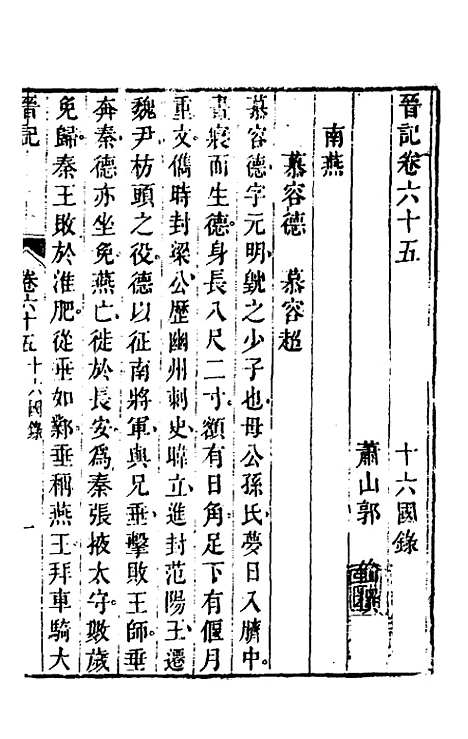 晉記卷六十五
十六國錄
蕭山郭
南燕
慕容德　慕容超
慕容德字元明皝之少子也母公孫氏夢日入臍中
晝寢而生德身長八尺二寸額有日角足下有偃月
重文儁時封梁公歷幽州刺史暐立進封范陽王遷
魏尹枋頭之役德以征南將軍與兄垂擊敗王師垂
奔秦德亦坐免燕亡徙於長安爲秦張掖太守數歲
免歸秦王敗於淮肥從垂如鄴垂稱燕王拜車騎大
晉記
卷六十五
十六國錄
一